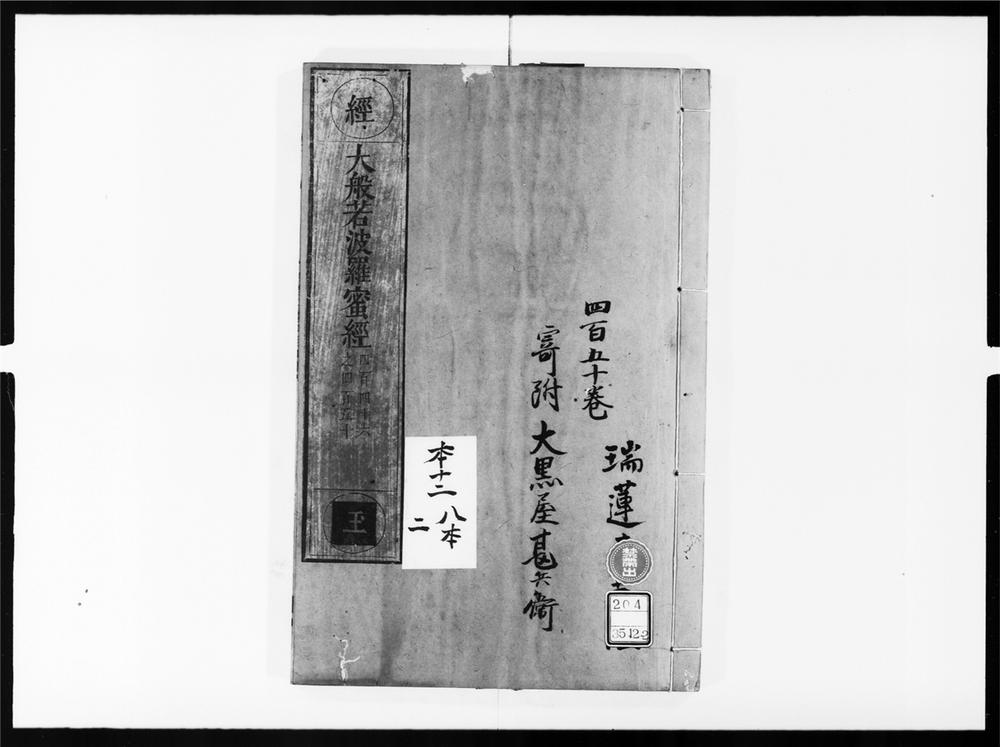 瑞蓮
禁帶出
204
35122
四百五十卷
寄附 大黒屋甚兵衛
經
大般若波羅蜜經
四百四十六
之四百五十
王
本十二
八本
二